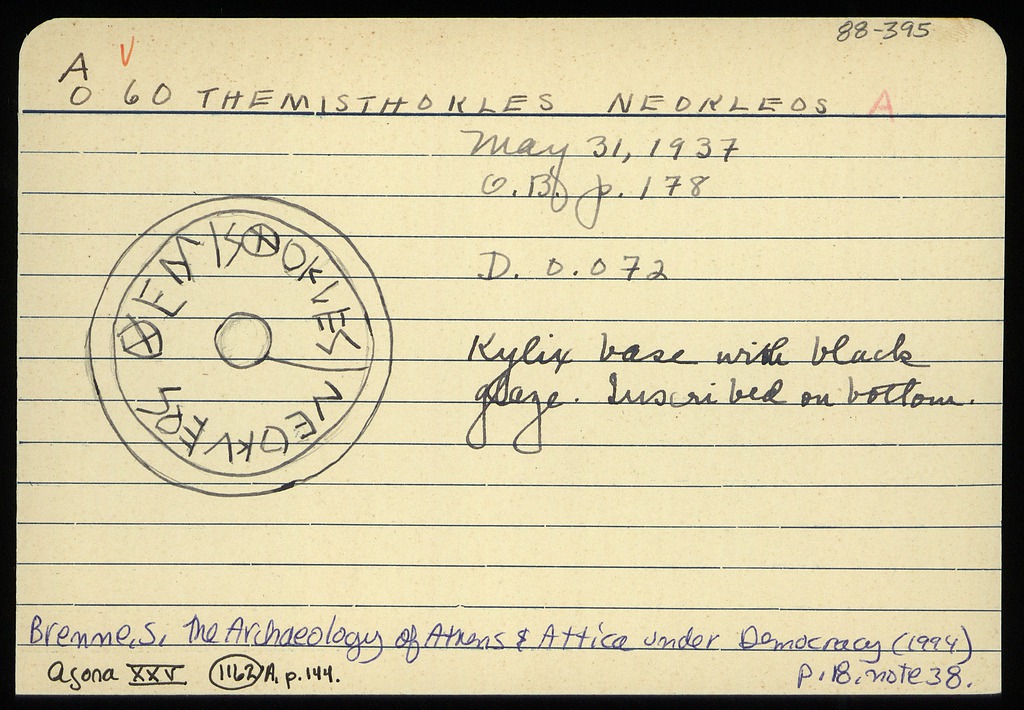 88-395
A V
O 60 THEMISTHOKLES NEOKLEOS A
May 31, 1937
O.B. p. 178
D. 0.072
Kylix base with black
glaze. Inscribed on bottom.
ⴲEMISⴲOKLES
NEOKLEOS
Brenne, S. The Archaeology of Athens & Attica under Democracy (1994)
p. 18. note 38.
Agora XXV 1162 A, p. 144.